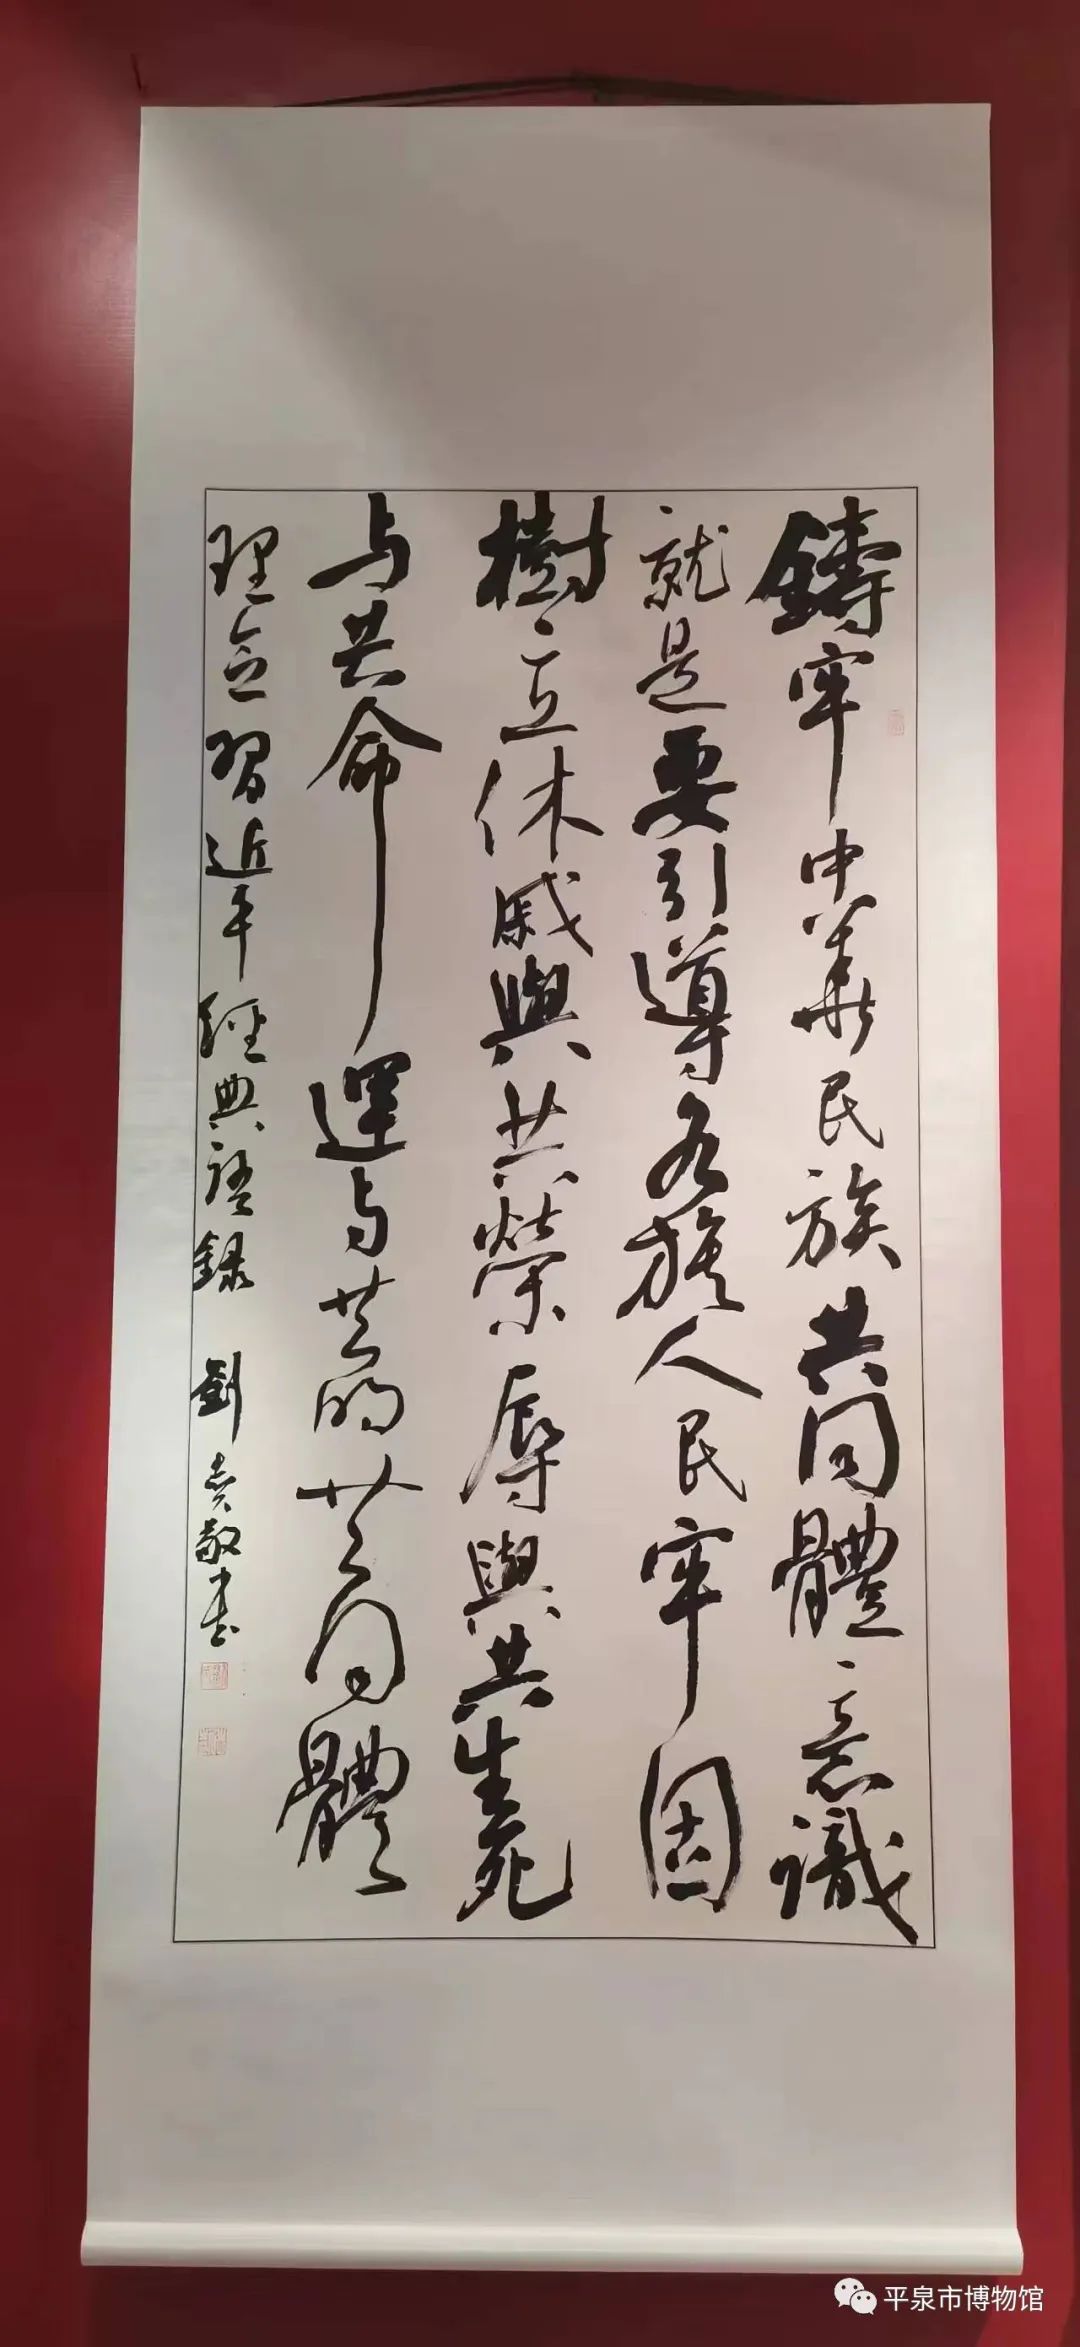 鑄牢中華民族共同體意識
就是要引導各族人民牢固
樹立休戚與共榮辱與共生死
与共命運与共的共同體
理念習近平經典語錄 劉 敬書
平泉市博物馆